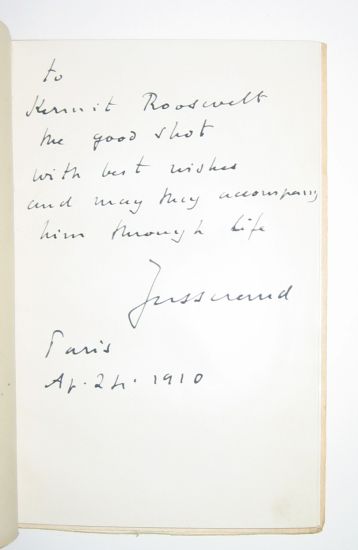 to
Kermit Roosevelt
the good shot
with best wishes
and may they accompany
him through life
Jusserand
Paris
Ap. 24. 1910